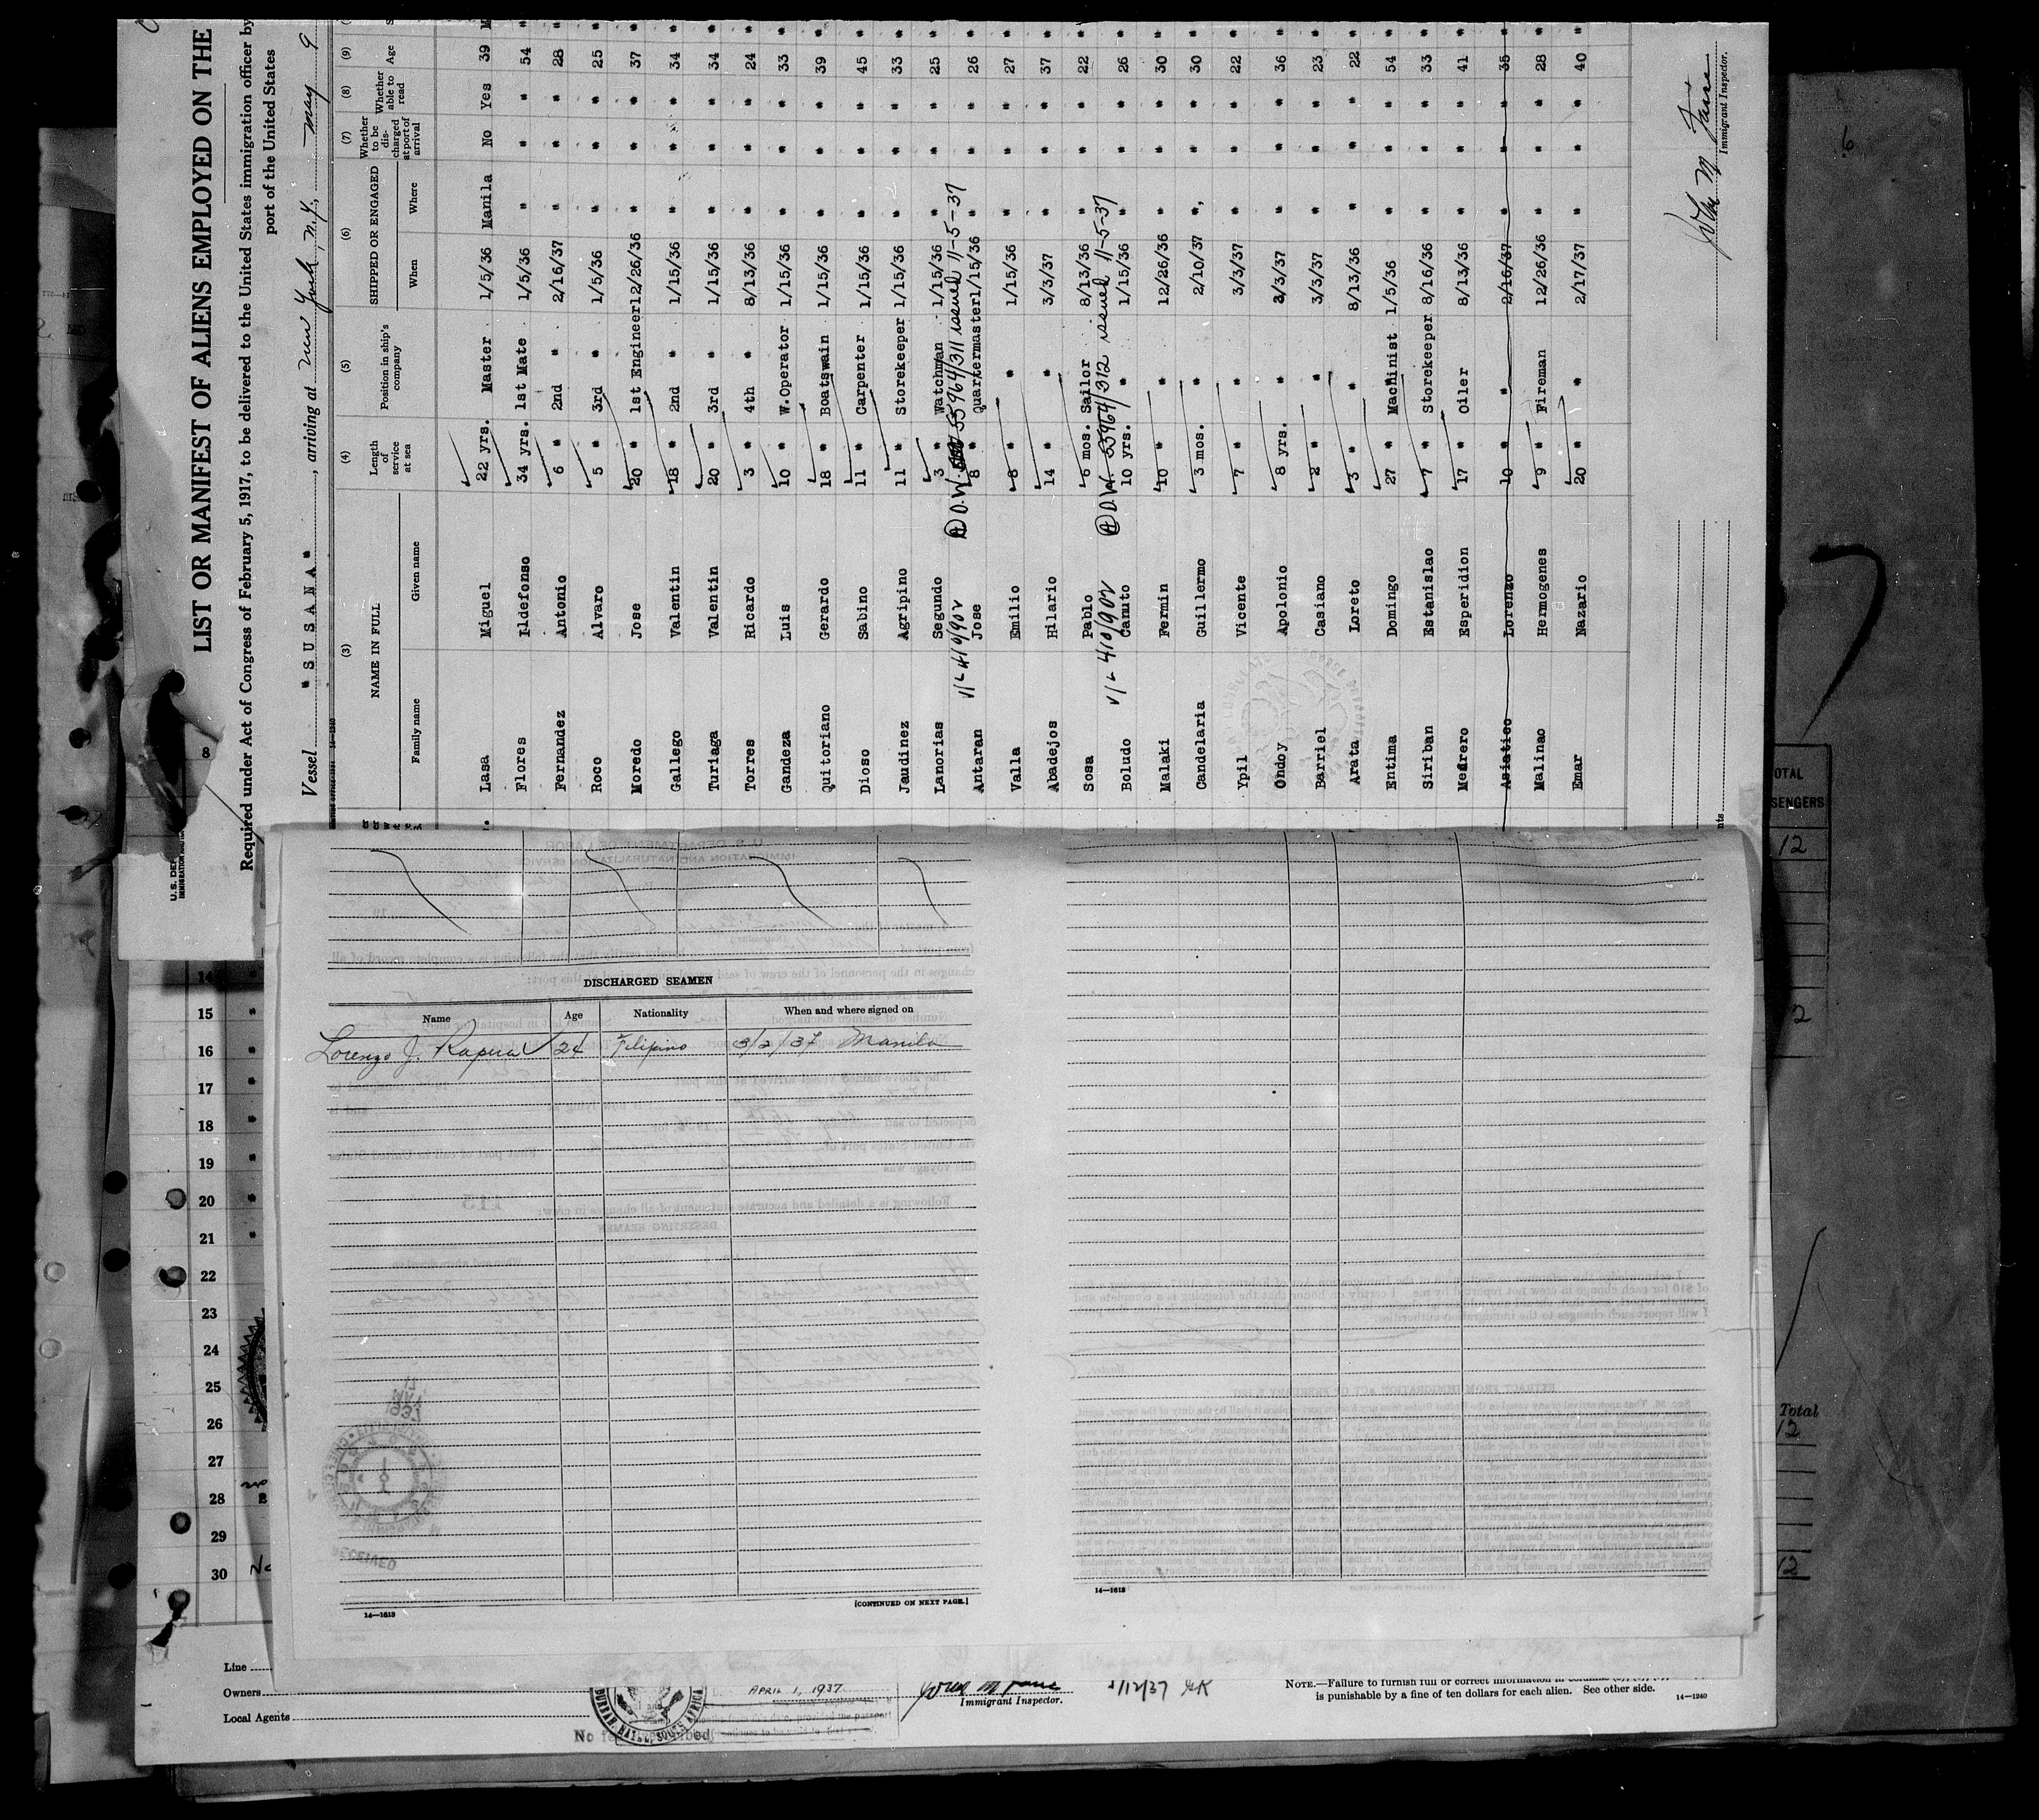 LIST OR MANIFEST OF ALIENS EMPLOYED ON THE
Required under Act of Congress of February 5, 1917, to be delivered to the United States immigration officer by
port of the United States
Vessel "SUSANA", arriving at New York, N.Y., May 9
(3) (4) (5) (6) (7) (8) (9)
NAME IN FULL Length of service at sea Position in ship's company SHIPPED OR ENGAGED Whether to be discharged at port of arrival Whether able to read Age
Family name Given name When Where
Lasa Miguel 22 yrs. Master 1/5/36 Manila No Yes 39 M
Flores Ildefonso 34 yrs. 1st Mate 1/5/36 " " " 54 "
Fernandez Antonio 6 " 2nd " 2/16/37 " " " 28 "
Roco Alvaro 5 " 3rd " 1/5/36 " " " 25 "
Moredo Jose 20 " 1st Engineer 12/26/36 " " " 37 "
Gallego Valentin 18 " 2nd " 1/15/36 " " " 34 "
Turiaga Valentin 20 " 3rd " 1/15/36 " " " 34 "
Torres Ricardo 3 " 4th " 8/13/36 " " " 24 "
Gandeza Luis 10 " W.Operator 1/15/36 " " " 33 "
Quitoriano Gerardo 18 " Boatswain 1/15/36 " " " 39 "
Dioso Sabino 11 " Carpenter 1/15/36 " " " 45 "
Jaudinez Agripino 11 " Storekeeper 1/15/36 " " " 33 "
Lanorias Segundo 3 " Watchman 1/15/36 " " " 25 "
V/L 410/902 D.W. 55964/311 issued 11-5-37
Antaran Jose 8 " Quartermaster 1/15/36 " " " 26 "
Valla Emilio 8 " " 1/15/36 " " " 27 "
Abadejos Hilario 14 " " 3/3/37 " " " 37 "
Sosa Pablo 6 mos. Sailor 8/13/36 " " " 22 "
V/L 410/902 D.W. 55964/312 issued 11-5-37
Boludo Canuto 10 yrs. " 1/15/36 " " " 26 "
Malaki Fermin 10 " " 12/26/36 " " " 30 "
Candelaria Guillermo 3 mos. " 2/10/37 " " " 30 "
Ypil Vicente 7 " " 3/3/37 " " " 22 "
Ondoy Apolonio 8 yrs. " 3/3/37 " " " 36 "
Barriel Casiano 2 " " 3/3/37 " " " 23 "
Arata Loreto 3 " " 8/13/36 " " " 22 "
Entima Domingo 27 " Machinist 1/5/36 " " " 54 "
Siriban Estanislao 7 " Storekeeper 8/16/36 " " " 33 "
Medrero Esperidion 17 " Oiler 8/13/36 " " " 41 "
Asiatico Lorenzo 10 " " 2/16/37 " " " 35 "
Malinao Hermogenes 9 " Fireman 12/26/36 " " " 28 "
Emar Nazario 20 " " 2/17/37 " " " 40 "
Immigrant Inspector.
8
DISCHARGED SEAMEN
Name Age Nationality When and where signed on
Lorenzo J. Rapisa 24 Filipino 3/2/37 Manila
14—1613
[CONTINUED ON NEXT PAGE.]
14—1613
RECEIVED
14 "
15 "
16 "
17 "
18 "
19 "
20 "
21 "
22
23
24
25
26
27
28
29
30
Line
Owners
Local Agents
APRIL 1, 1937
DURBAN, NATAL, SOUTH AFRICA
Immigrant Inspector.
5/12/37 GK
NOTE.—Failure to furnish full or correct information in columns
is punishable by a fine of ten dollars for each alien. See other side.
14—1240
OTAL
SENGERS
12
2
Total
12
12